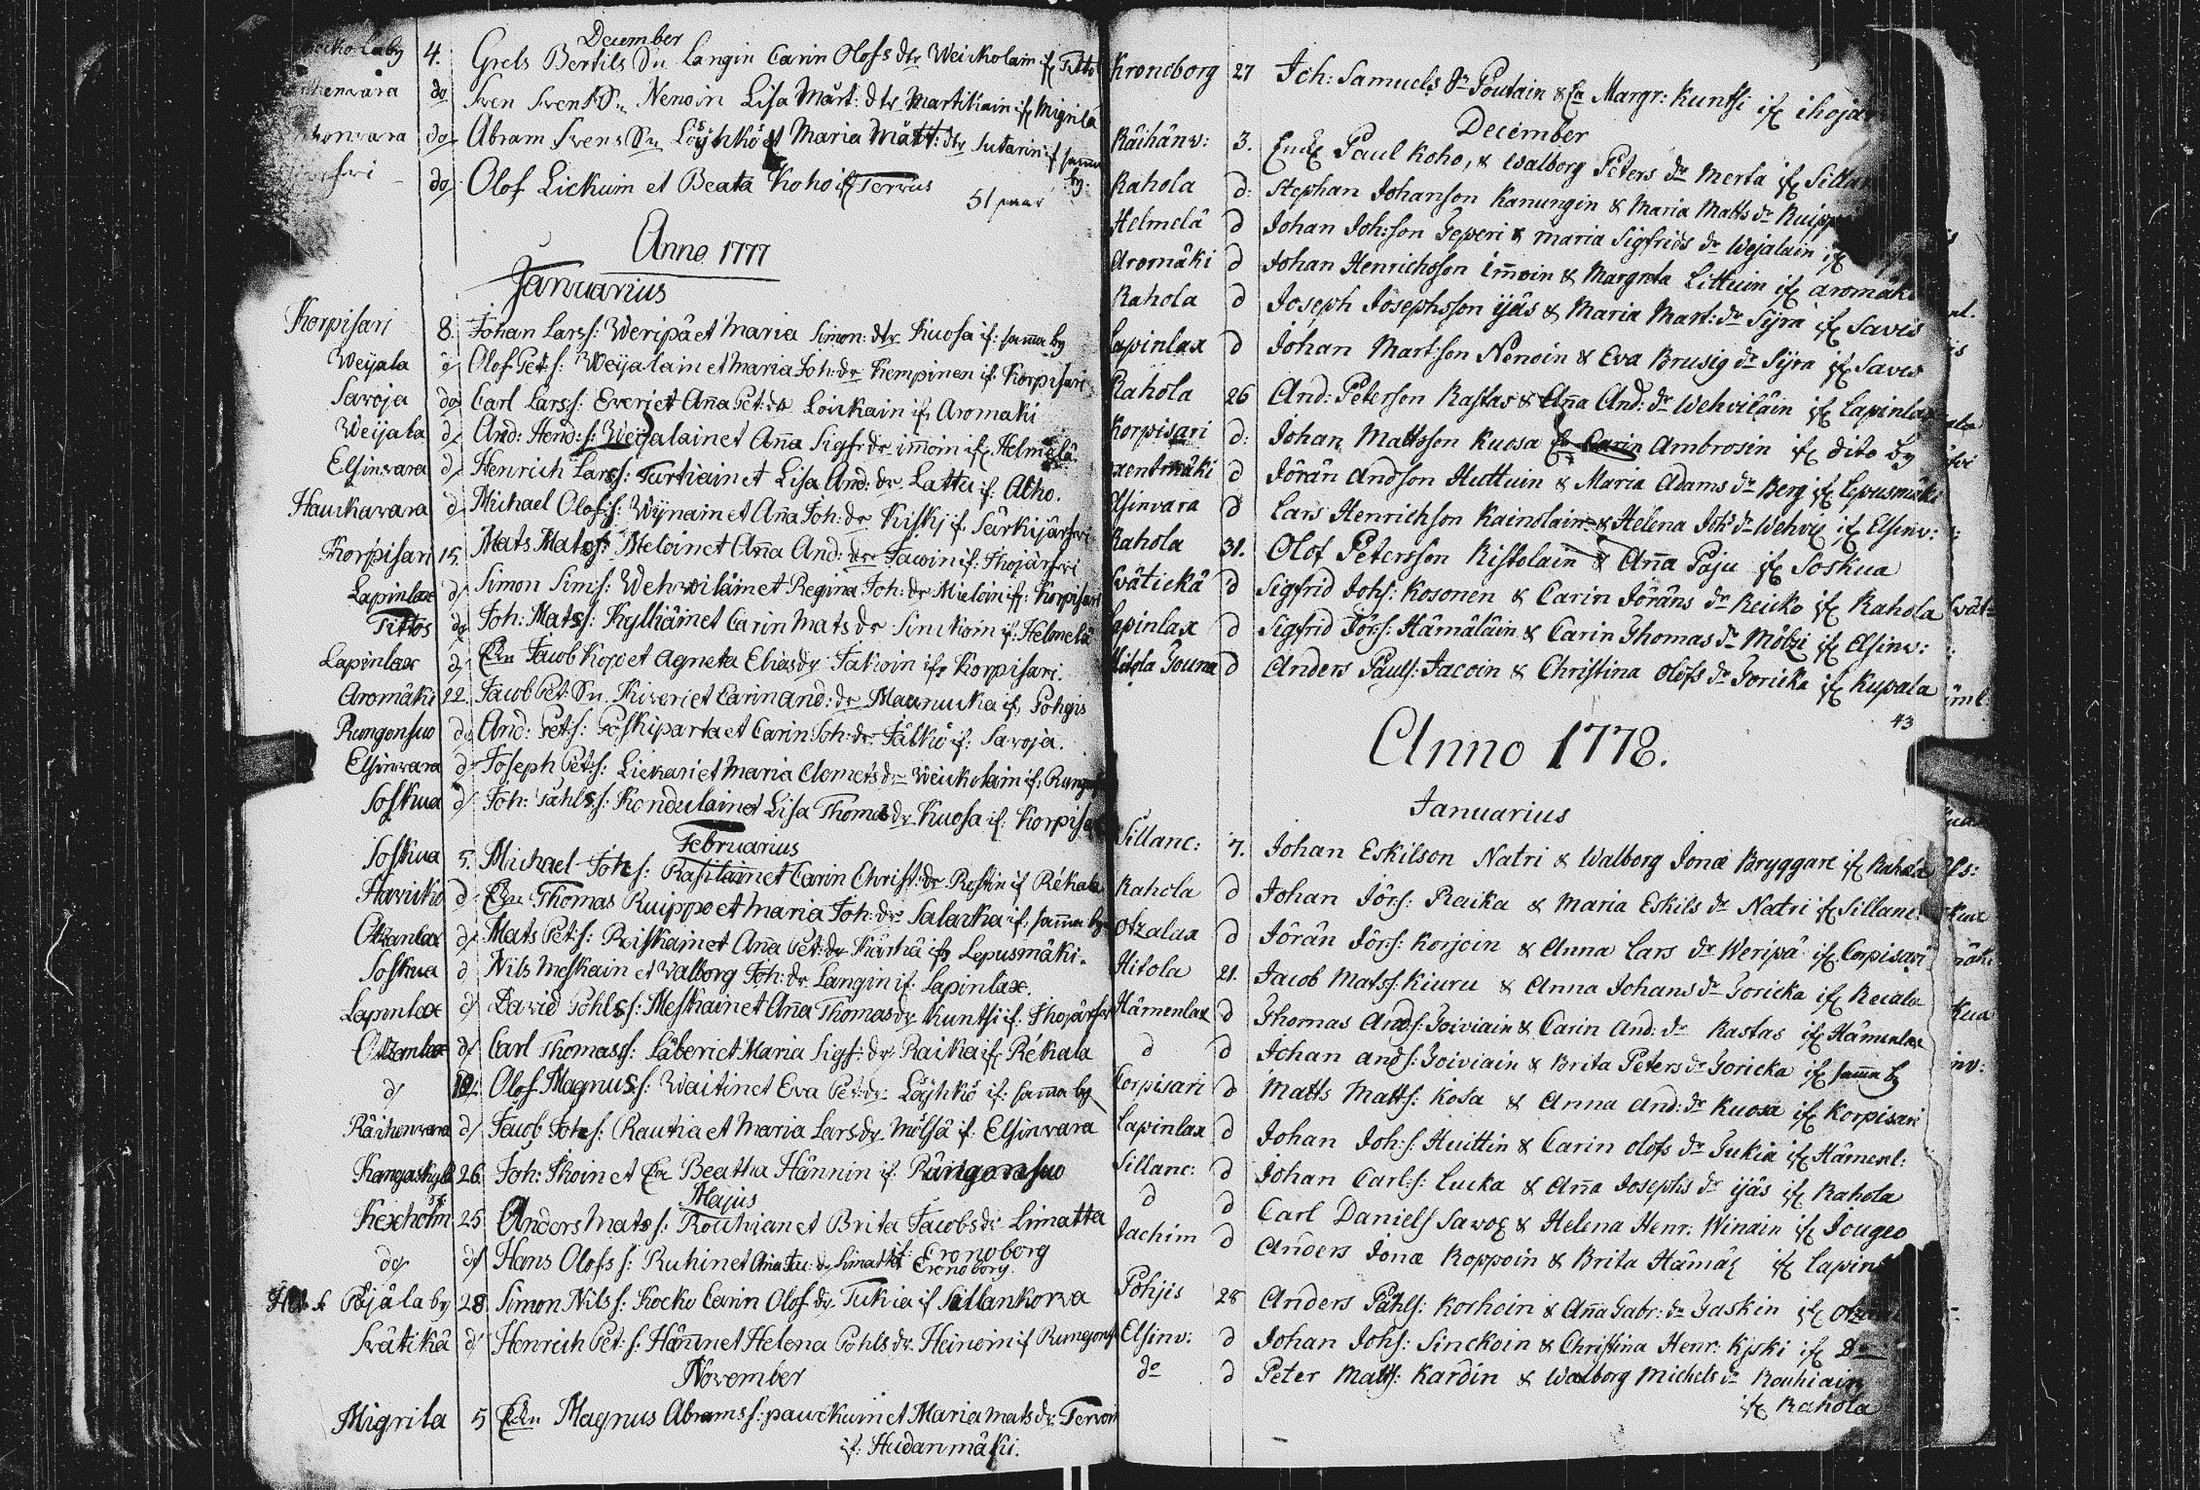 December
4. Grels Bertils Sn Langin Carin Olofs dtr Weickolain if Titto
do Sven Svens Sn Nenoin Lisa Mårt: dtr Martikain if Migrila
do Abram Svens Sn Löyhkö et Maria Mått: dtr Sutarin if samma by:
do Olof Lickuin et Beata Koho if Tervus
51 paar
Anno 1777
Januarius
Korpisari 8. Johan Larss: Weripä et Maria Simon: dtr Kuosa if: sama by
Weijala d Olof Pet: s: Weijalain et Maria Joh: dr Kempinen if: Korpisari
Savoja do Carl Larss: Everi et Aña Pet: dr Loickain if Aromäki
Weijala d And: Hend: s: Weijalain et Aña Sigf: dr imoin if Helmelä
Elsinvara d Henrich Larss: Turtiain et Lisa And: dr Lattu if: Alho.
Hauckavara d Michael Olofs: Wijnain et Aña Joh: dr Kiskj if Särkijärfvi
Korpisari 15. Mats Mats: Meloin et Aña And: dr Jacoin if: Ihojärfvi
Lapinlax d Simon Sim: s: Wehviläin et Regina Joh: dr Mieloin if: Korpisari
Tittos do Joh: Matss: Kylliäin et Carin Mats dr Sinckoin if: Helmelä
Lapinlax d Enk Jacob Kojo et Agneta Elias dr Jakoin if Korpisari.
Aromäki 22. Jacob Pet: Sn. Kiveri et Carin And: dr Mannucka if Pohgis
Rungonsuo do And: Pet: s: Poskiparta et Carin Joh: dr Jälkö if: Savoja.
Elsinvara d Joseph Pet: s: Lickari et Maria Clemets dr Weickolain if: Rungo
Soskua d Joh: Påhls s: Kondulain et Lisa Thomas dr Kuosa if: Korpisa
Februarius
Soskua 5. Michael Joh: s: Rasilain et Carin Christ: dr Roskin if Rékala
Havicko d Enk Thomas Ruippo et Maria Joh: dr Salacka if, sama by
Otzanlax d Mats Pet: s: Riskain et Aña Pet: dr Kärhä if Lepusmäki.
Soskua d Nils Meskain et Walborg Joh: dr Langin if: Lapinlax.
Lapinlax d David Påhls s: Meskain et Aña Thomas dr Kuntsi if: Ihojärfvi
Otzanlax d Carl Thomass: Läveri et Maria Sigf: dr Raika if Rékala
d 12. Olof Magnus s: Waitin et Eva Pet: dr Löyhkö if: sama by
Räihenvara d Jacob Joh: s: Rautia et Maria Lars dr Mölsä if: Elsinvara
Kangaskylä 26. Joh: Ikoin et Enk Beatha Hännin if Rungonsuo
Majus
Kexholm 25 Anders Mats s: Rouhian et Brita Jacobs dr Limatta
if: Cronoborg
do d Hans Olofs s: Ruhin et Aña Jac: dr Limatta if Cronoborg.
Päjälä by 28 Simon Nils s: Kocko Carin Olof dr Tukia if Sillankorva
Svätikä d Henrich Pet: s: Hämin et Helena Pohls dr Heinoin if Rumgons
November
Migrila 5 Enk Magnus Abrams s: pauckuin et Maria Mats dr Tervoin
if: Hudanmäki.
Kronoborg 27 Joh: Samuels Sn Poutain & En Margr: Kuntsi if ihojär
December
Räihänv: 3. Enk Paul Koho, & Walborg Peters dr Merta if Sillan
Rahola d: Stephan Johanson Kanungin & Maria Matts dr Ruipp
Helmelä d Johan Joh:son Jeveri & Maria Sigfrids dr Wejalain if
Aromäki d Johan Henrichsson imoin & Margreta Littuin if aromäki
Rahola d Joseph Josephsson ijäs & Maria Mart: dr Sijrä if Saves
Lapinlax d Johan Mart:son Nenoin & Eva Brusig dr Sijra if Saves
Rahola 26 And: Peterson Rastas & Aña And: dr Wehviläin if Lapinlax
Korpisari d: Johan Mattsson Kuosa & Carin Ambrosin if dito by
d Jöran Andson Huttuin & Maria Adams dr Berg if Lepusmäki
Elsinvara d Lars Henrichson Kainolain & Helena Joh dr Wehvi if Elsinv:
Rahola 31. Olof Petersson Ristolain & Aña Paju if Soskua
Svätickä d Sigfrid Johs: Kosonen & Carin Jörans dr Reicko if Rahola
Lapinlax d Sigfrid Jörs: Hämäläin & Carin Thomas dr Mölzi if Elsinv:
Hitola Jouna d Anders Pauls: Jacoin & Christina Olofs dr Joricka if Kupala
43
Anno 1778.
Januarius
Sillanc: 7. Johan Eskilson Natri & Walborg Jonæ Bryggare if Rahola
Rahola d Johan Jörs: Raika & Maria Eskils dr Natri if Sillanc:
Otzalax d Jöran Jör:s: Korjoin & Anna Lars dr Weripä if Corpisari
Hitola 21. Jacob Matss: Kiuru & Anna Johans dr Joricka if Recala
Hämenlax d Thomas Ands: Toiviain & Carin And: dr Rastas if Hämenlax
d d Johan ands: Toiviain & Brita Peters dr Joricka if sama by
Corpisari d Matts Matts: Kosa & Anna And: dr Kuosa if Korpisari
Lapinlax d Johan Joh:s: Huittin & Carin Olofs dr Tukia if Hämenl:
Sillanc: d Johan Carl:s: Lucka & Aña Josephs dr ijäs if Rahola
d d Carl Daniels Savoz & Helena Henr: Winain if Jougeo
Jachim d Anders Jonæ Roppoin & Brita Hämäz if Lapinl
Pohjis 28 Anders Påhls: Korhoin & Aña Gabr: dr Jaskin if Otzanl
Elsinv: d Johan Johs: Sinckoin & Christina Henr: Kjski if Do
do d Peter Matts: Kardin & Walborg Michels dr Rouhiain
if Rahola